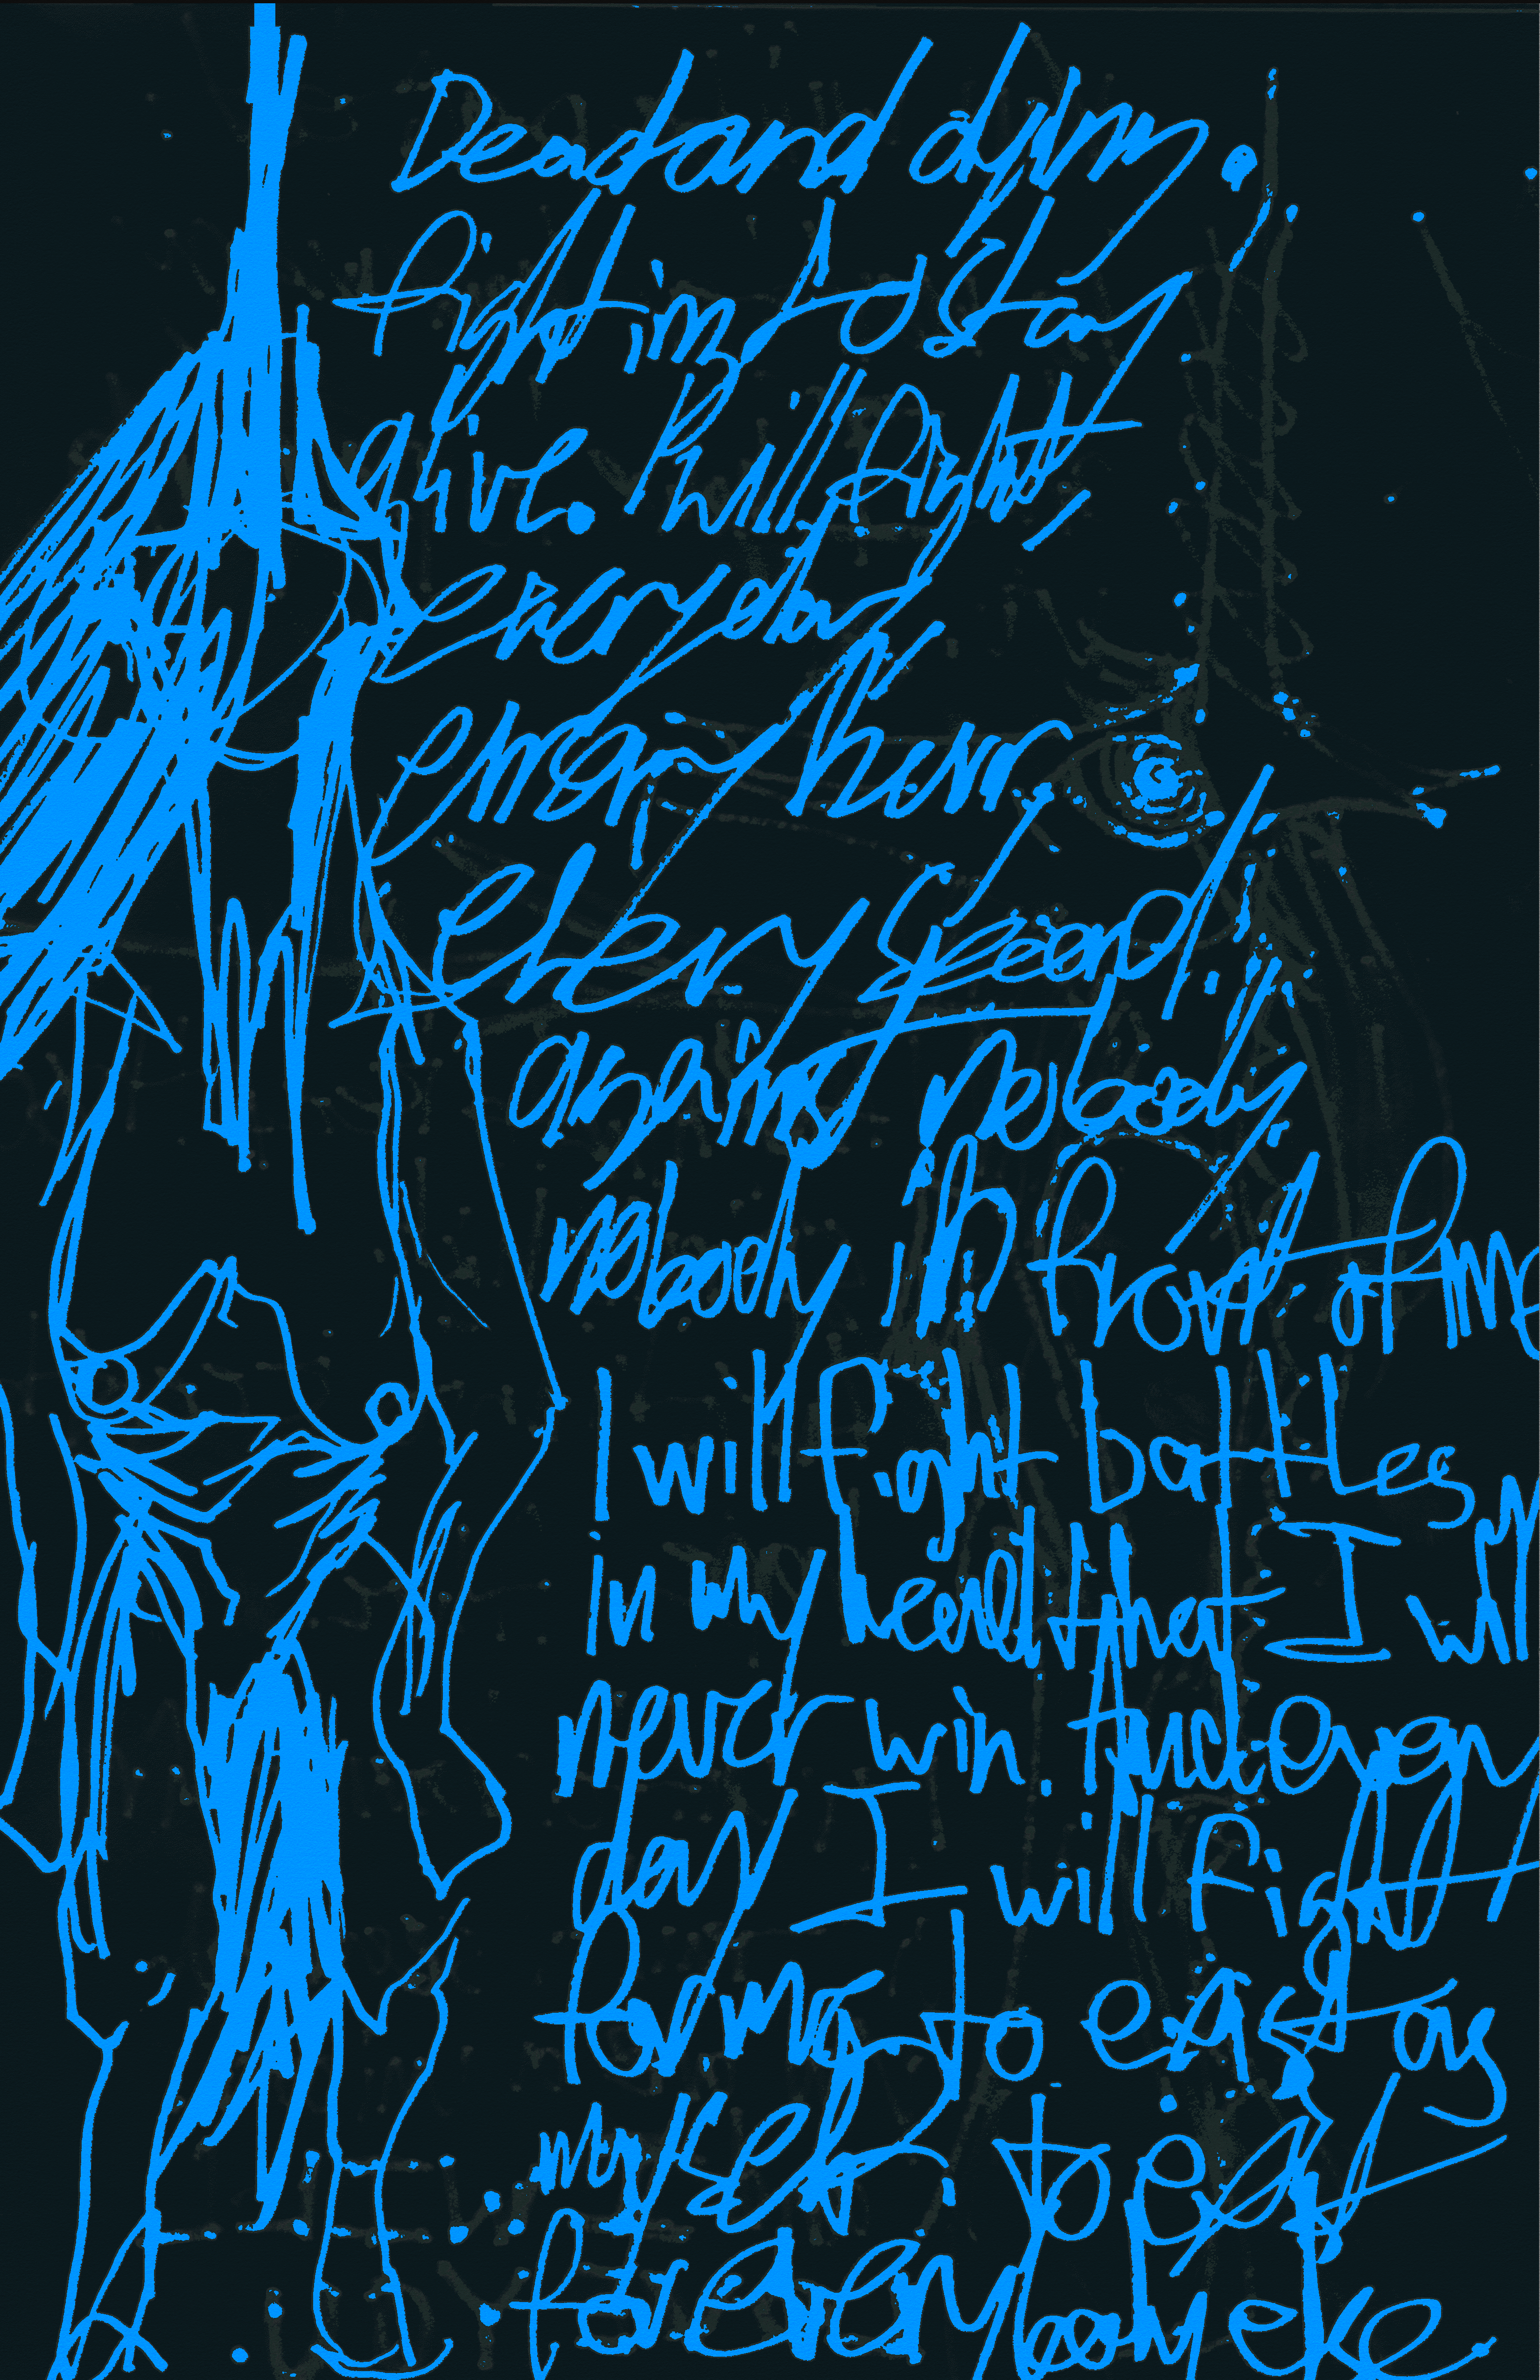 Dead and dying.
fighting to stay
alive. I will fight,
everyday
every hour,
every second,
against nobody.
nobody in front of me
I will fight battles
in my head that I will
never win. And every
day I will fight
for me to exist as
myself, to exist
for everybody else.